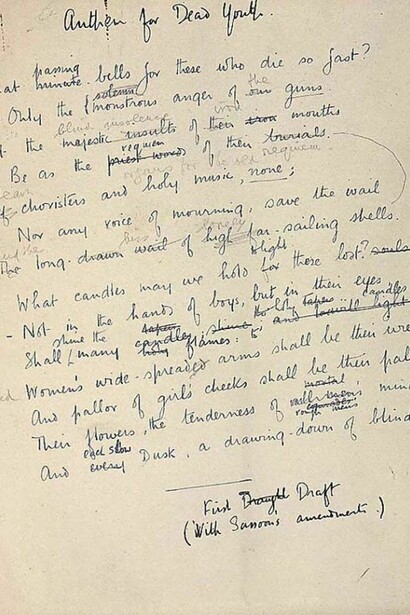 Anthem for Dead Youth.
passing solemn
at minute bells for these who die so fast?
Only the monstrous anger of the our guns.
blind insolence iron
the majestic insults of their iron mouths
requiem
Be as the priest words of their burials.
organs for the old requiem
of choristers and holy music, none;
Nor any voice of mourning, save the wail
hiss lonely
The long-drawn wail of high far-sailing shells.
light
What candles may we hold for these lost? souls
- Not in the hands of boys, but in their eyes
shine the tapers the holy tapers candles
Shall many candles; shine holy flames: to and I will light
Women's wide-spreaded arms shall be their wre
And pallor of girls' cheeks shall be their pal
mortal
Their flowers, the tenderness of minds
rough men's
each slow
And every Dusk, a drawing-down of blind
First Draught Draft
(With Sassoon's amendments.)